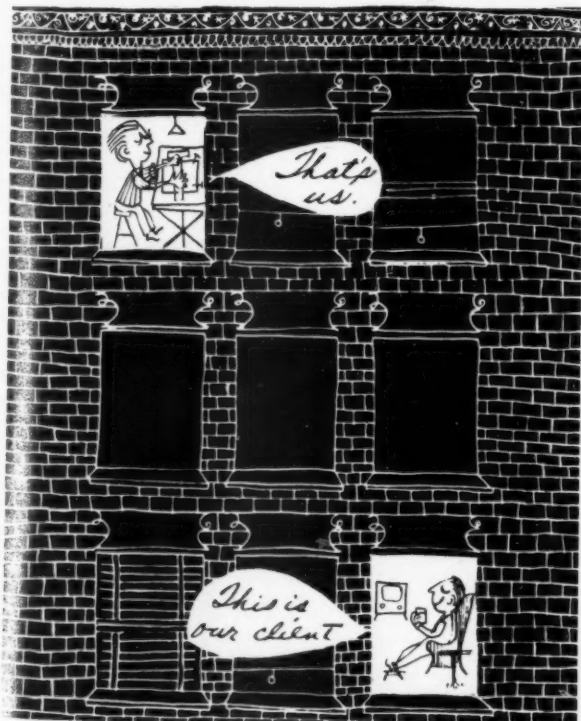 That's
us.
This is
our client